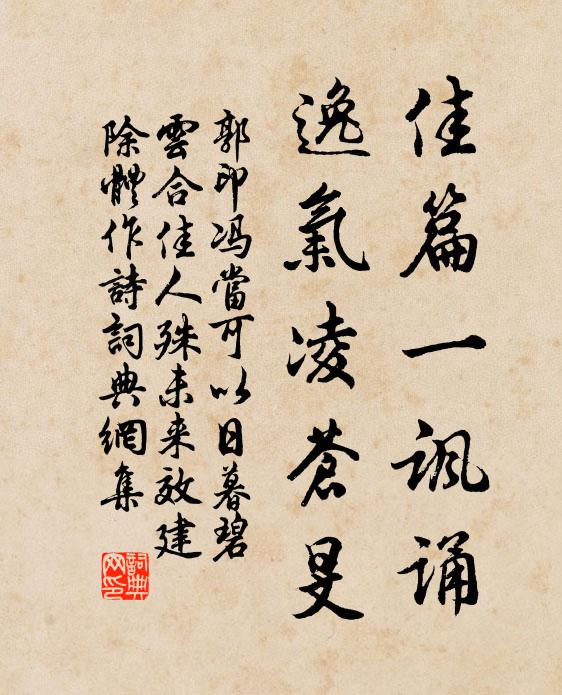 佳篇一諷誦
逸氣凌蒼旻
郭印馮當可以日暮碧
雲合佳人殊未来效建
除體作詩詞典網集
詞典
网印